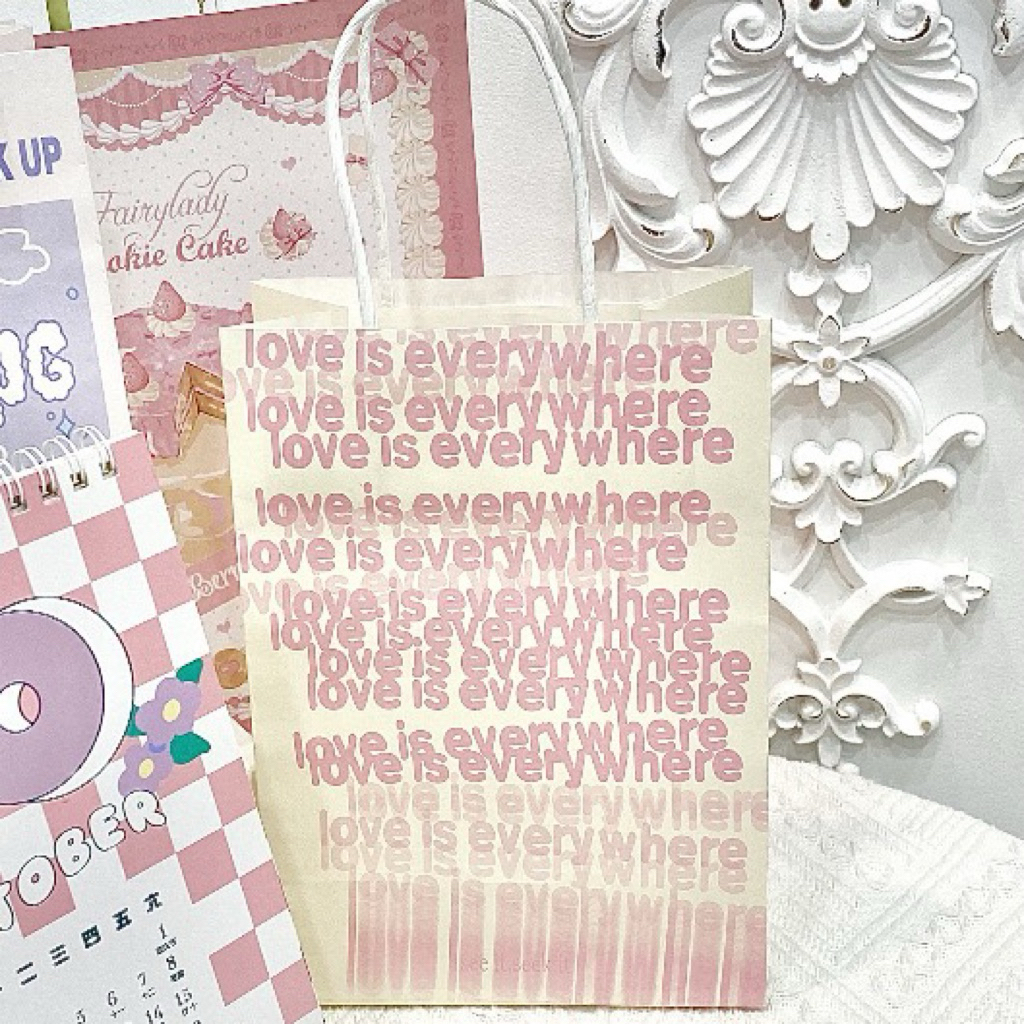 K UP
Fairylady
okie Cake
UG
Berr
love is everywhere
love is everywhere
love is everywhere
love is everywhere
love is everywhere
love is everywhere
love is everywhere
love is everywhere
love is everywhere
love is everywhere
love is everywhere
love is everywhere
love is everywhere
love is everywhere
love is everywhere
love is everywhere
love is everywhere
love is everywhere
love is everywhere
TOBER
二 三 四 五 六
1
6 7 8
14 15